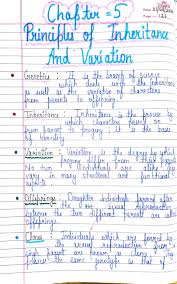 Chapter = 5
Principles of Inheritance
And Variation
Date
Page
• Genetics : It is the branch of science
which deals with the inheritance
as well as the variation of characters
from parents to offsprings.
• Inheritance : Inheritance is the process by
which characters passed on
from parent to progeny : it is the basis
of heredity.
• Variation : Variation is the degree by which
progeny differ from their parent
No two individuals are alike
vary in many structural and functional
aspects
• Offsprings : Daughter individuals formed after
the sexual reproduction
the two different parent are called
offsprings.
• Clones : Individuals which are formed by
the asexual reproduction from
single parent are known as clones
the same genotype is that of